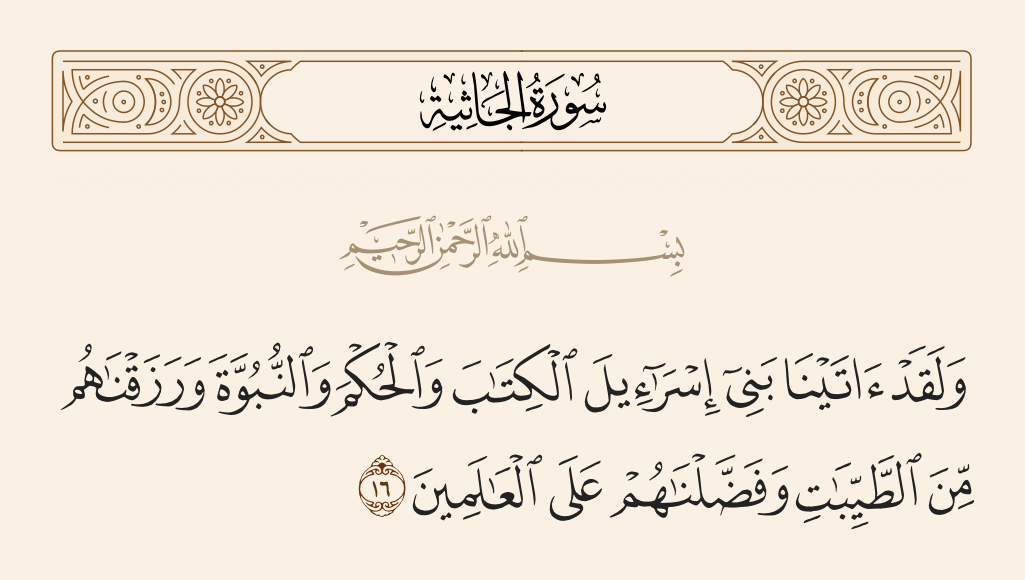 سُورَةُ الجَاثِيَةِ
بِسْمِ ٱللَّهِ ٱلرَّحْمَٰنِ ٱلرَّحِيمِ
وَلَقَدْ ءَاتَيْنَا بَنِىٓ إِسْرَٰٓءِيلَ ٱلْكِتَٰبَ وَٱلْحُكْمَ وَٱلنُّبُوَّةَ وَرَزَقْنَٰهُم
مِّنَ ٱلطَّيِّبَٰتِ وَفَضَّلْنَٰهُمْ عَلَى ٱلْعَٰلَمِينَ ١٦